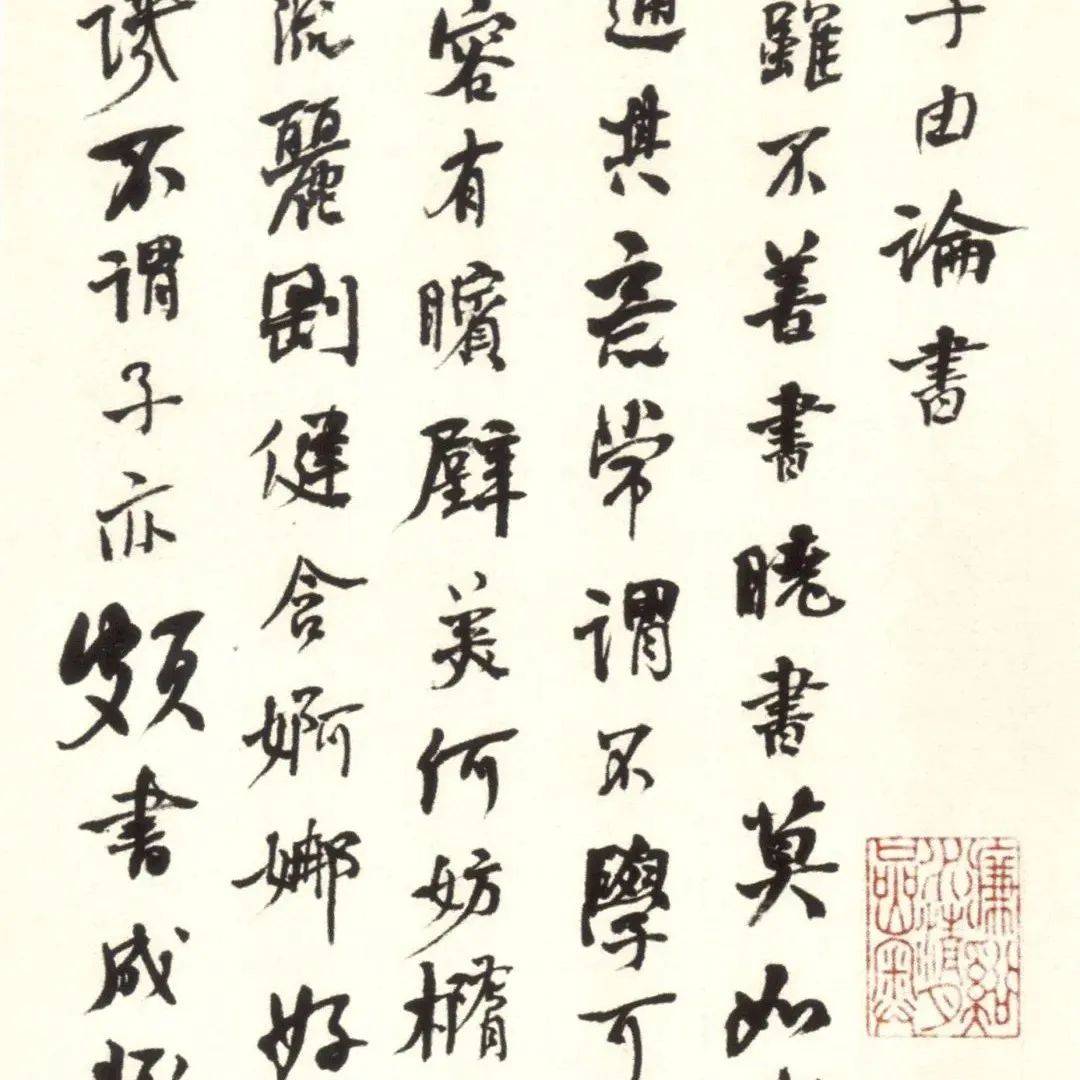 子由論書
雖不善書曉書莫如
通其意常謂不學可
容有矉璧美何妨橢
流麗剛健含婀娜好
譏不謂子亦頗書成